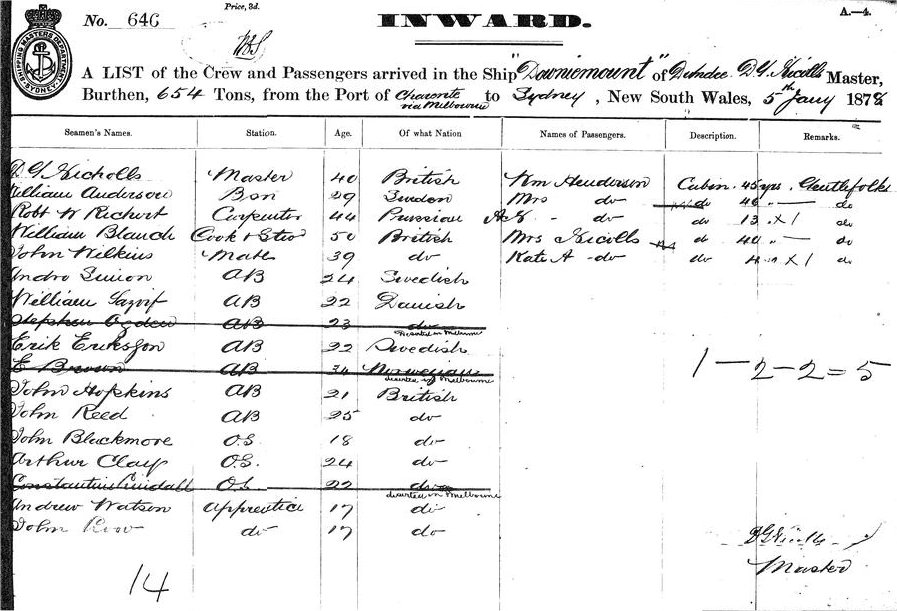 No. 646
Price, 3d.
INWARD.
A.—4.
SHIPPING MASTERS DEPARTMENT SYDNEY
A LIST of the Crew and Passengers arrived in the Ship "Downiemount" of Dundee D G Nicolls Master,
Burthen, 654 Tons, from the Port of Charente via Melbourne to Sydney, New South Wales, 5th Jany 1878
Seamen's Names. Station. Age. Of what Nation Names of Passengers. Description. Remarks.
D G Nicholls Master 40 British Wm Henderson Cabin 45 yrs. Gentlefolks
William Anderson Bsn 29 Sweden Mrs do do 46 " — do
Robt W Richert Carpenter 44 Prussian - do do 13 " X 1 do
William Blanch Cook & Stew 50 British Mrs Nicolls d 40 " — do
John Wilkins Mate 39 do Kate A - do do 4 " X 1 do
Andro AB 24 Swedish
William AB 22 Danish
Stephen Ogden AB 23 do
Deserted in Melbourne
Erik Eriksson AB 22 Swedish
E Brown AB 34 Norwegian
deserted in Melbourne
John Hopkins AB 21 British
John Reed AB 25 do
John Blackmore O.S. 18 do
Arthur Clay O.S. 24 do
Constantius O.S. 22 do
deserted in Melbourne
Andrew Watson Apprentice 17 do
John do 17 do
1 — 2 - 2 = 5
14
Master